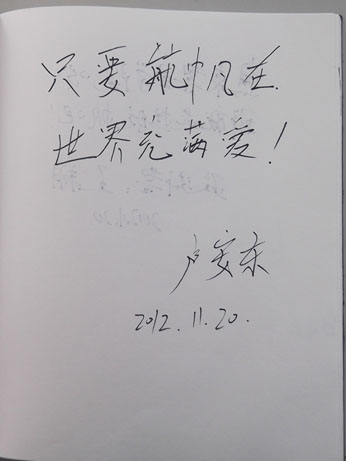 只要航帆在.
世界充满爱！
卢安东
2012.11.20.